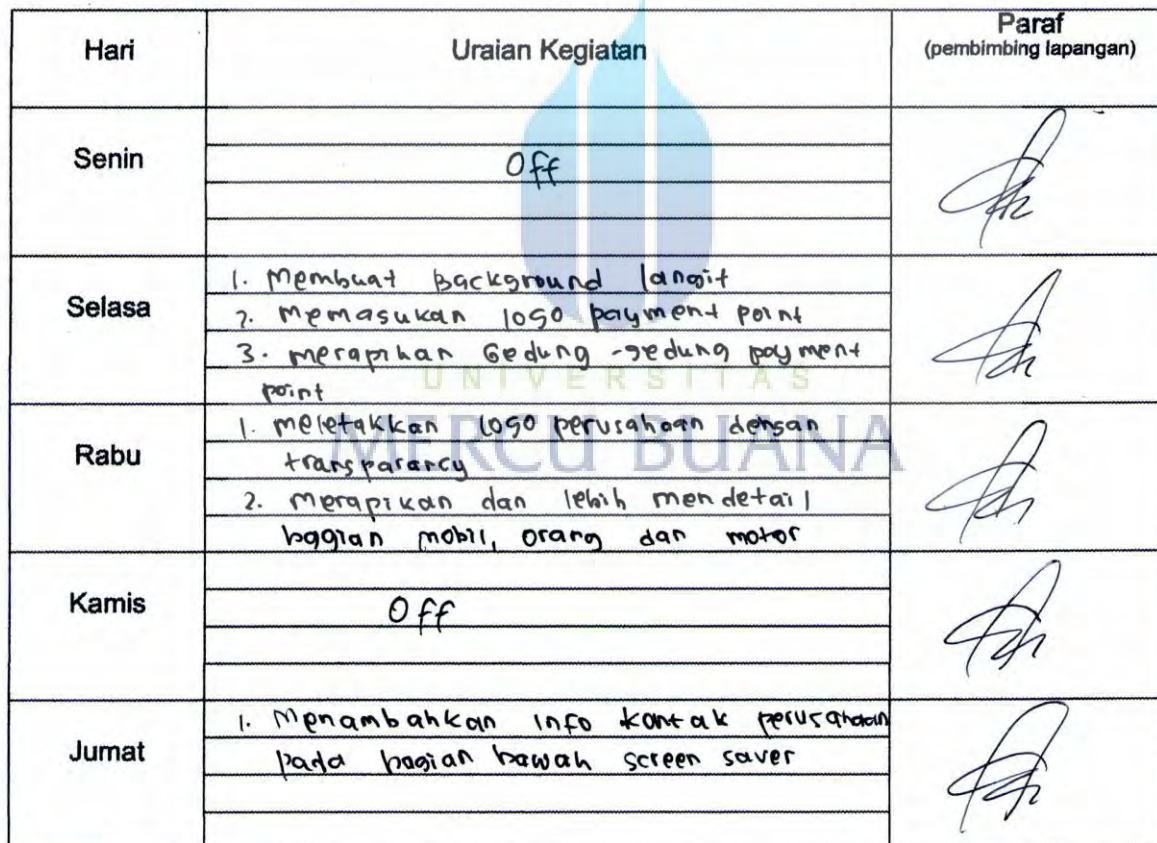 Hari Uraian Kegiatan Paraf
(pembimbing lapangan)
Senin Off
Selasa
1. Membuat background langit
2. Memasukan logo payment point
3. merapihan Gedung-gedung payment
point
UNIVERSITAS
MERCU BUANA
Rabu
1. meletakkan logo perusahaan dengan
transpararcy
2. merapikan dan lebih mendetail
bagian mobil, orang dan motor
Kamis Off
Jumat
1. Menambahkan info kontak perusahaan
pada bagian bawah screen saver